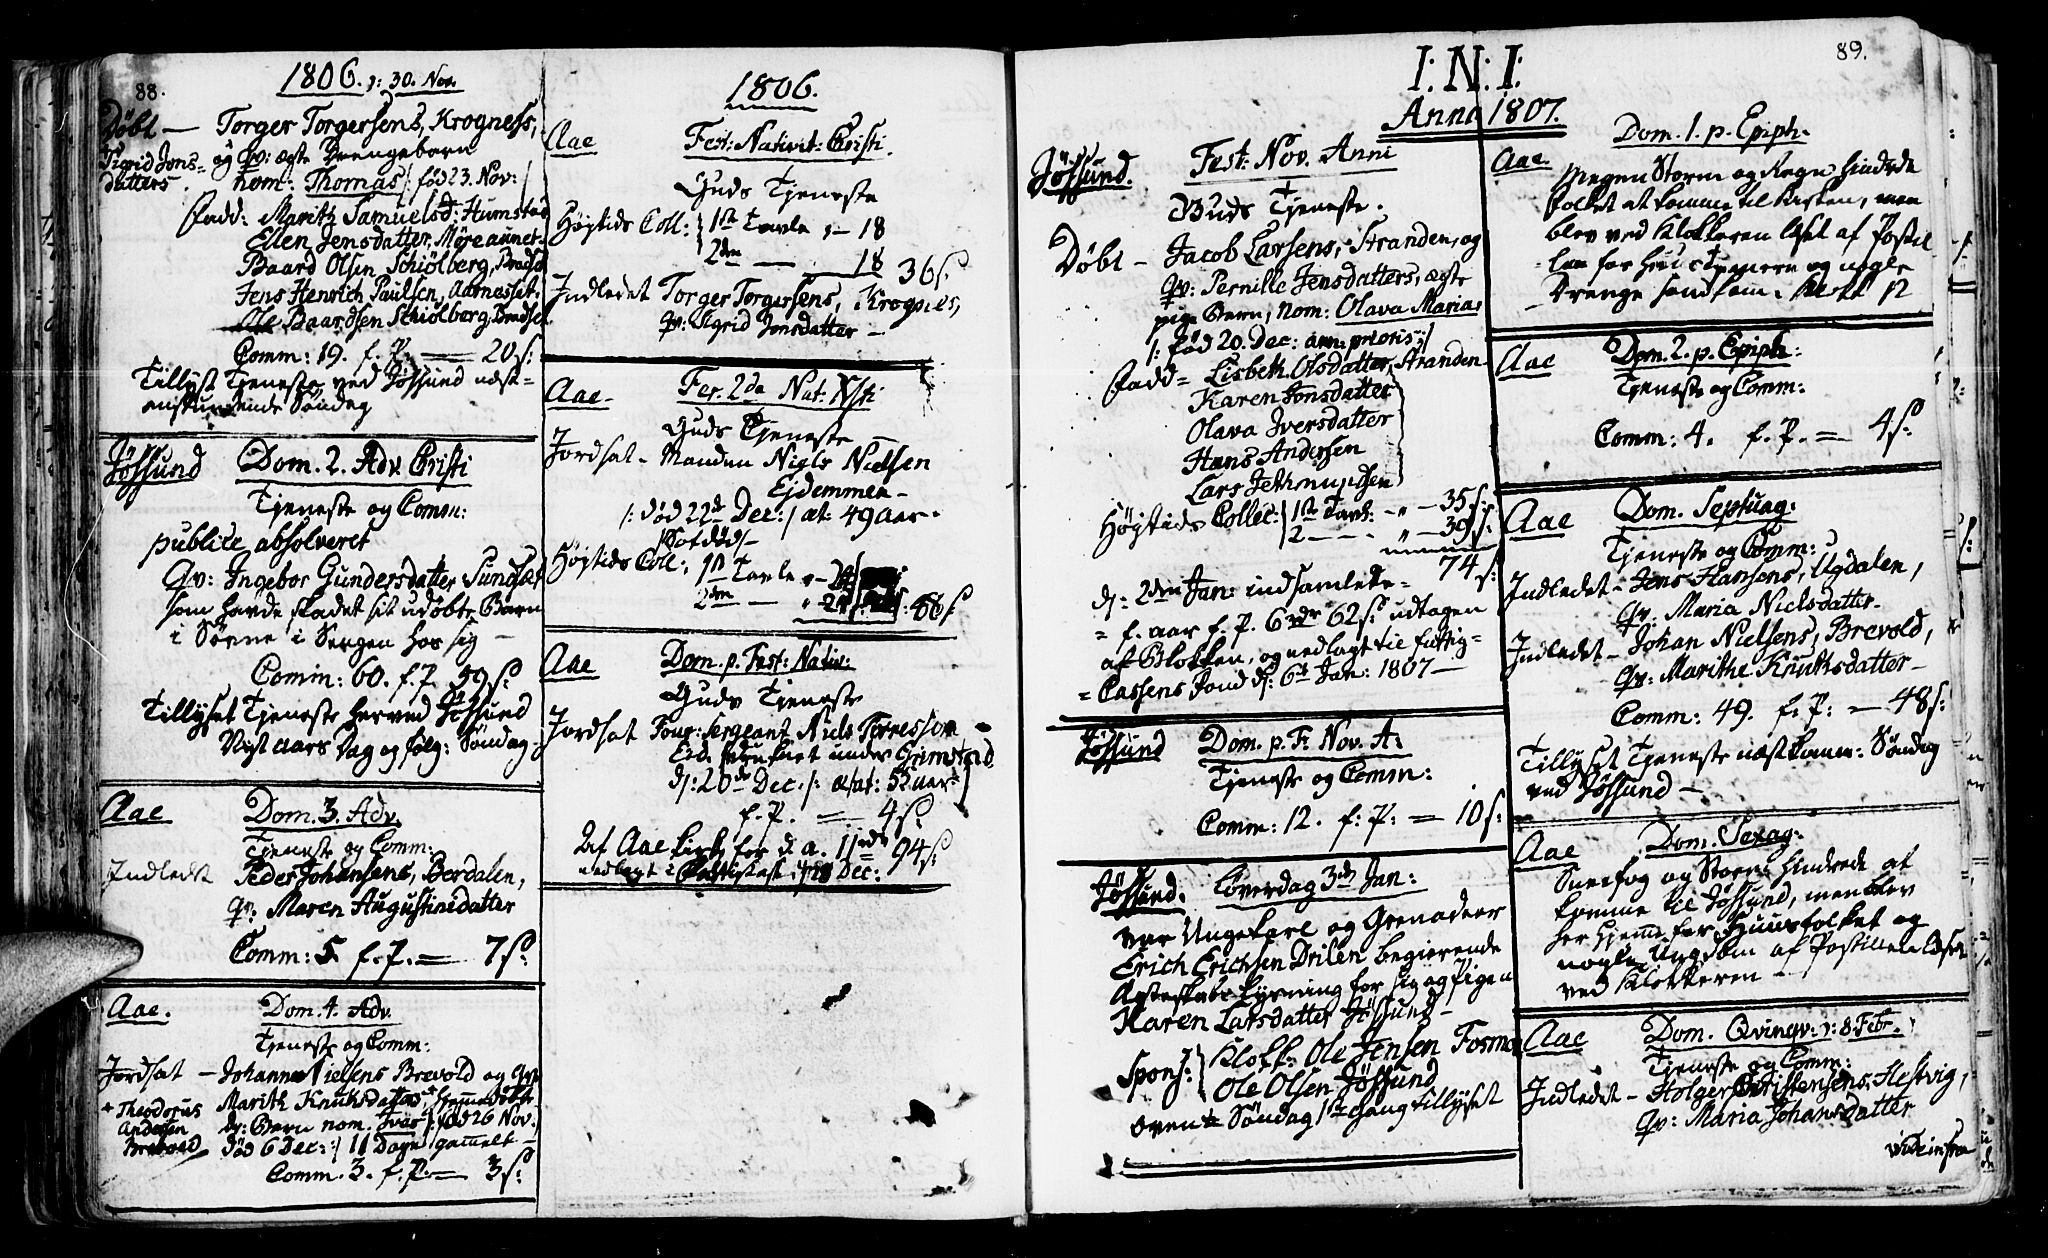 88.
1806. ɔ: 30. Nov.
Døbt — Torger Torgersens, Krogness,
+ Sigrid Jons= og Qv: ægte Drengebarn
datters. nom: Thomas /: fød 23. Nov: /
Fadd: Marith Samuelsd: Humstad
Ellen Jensdatter, Møreaunet
Baard Olsen Schiølberg, Bredsel
Jens Henrich Paulsen, Aarnesset.
Ole Baardsen Schiølberg, Bredsel
Comm: 19. f. P. — 20 s:
Tillyst Tjeneste ved Jøssund næst=
enstundende Søndag
Jøssund Dom. 2. Adv. Cristi
Tjeneste og Comm:
publice absolveret
Qv: Ingebor Gundersdatter Sundset
som havde skadet sit udøbte Barn
i Søvne i Sengen hos sig —
Comm: 60. f. P. 59 s:
Tillyset Tjeneste her ved Jøssund
Nyt aars Dag og følg: Søndag
Aae Dom. 3. Adv.
Tjeneste og Comm:
Indledt Peder Johansens, Berdalen,
Qv: Maren Augustinidatter
Comm: 5. f. P. = 7 s:
Aae. Dom. 4. Adv.
Tjeneste og Comm:
Jordsat — Johan Nielsens Brevold og Qv:
+ Theodorus Marith Knuksdatters, hjemmedøbte
Andersen dr: Barn nom. Ivar /: fød 26 Nov.
Brevold død 6 Dec: :/ 11 Dage gammelt —
Comm. 3. f. P. — 3 s:
1806.
Aae Fest: Nativit: Cristi
Guds Tjeneste
Høytids Coll: 1ste Tavle ɔ — 18
2den — 18 36 s
Indledet Torger Torgersens, Krognes,
Qv: Sigrid Jonsdatter —
Aae. Fer. 2da Nat: Xsti
Guds Tjeneste
Jordsat — Manden Niels Nielsen
Ejdemmen —
/: død 22de Dec: / æt: 49 aar.
Høytids Coll: 1ste Tavle
2den — 66 s
Aae Dom. p. Fest: Nativ:
Guds Tjeneste
Jordsat Four: Sergeant Niels Terresson
under Grimstad
d: 20de Dec. /: ætat: 52 aar :/
f. P. — 4 s:
Af Aae Kirke for d. a. 94 s:
nedlagt i Dec:
89.
I: N: I:
Anno 1807.
Jøssund. Fest: Nov. Anni
Guds Tjeneste.
Døbt — Jacob Larsens, Stranden, og
Qv: Pernille Jensdatters, ægte
pige Barn, nom: Olava Maria
/: fød 20. Dec: ann: prioris :/
Fadd = Lisbeth Olsdatter, Stranden
Karen Jonsdatter
Olava Iversdatter
Hans Andersen
Lars Jethmundsen
Høytids Collec: 1ste Tavl: — „ — 35 s:
2 — — „ — 39 s:
74 s:
d: 2den Jan: indsamlede =
= f. aar f. P. 6 rdr 62 s: udtagen
af Blokken, og nedlagt til fattig=
= Cassens Fond d: 6te Jan: 1807 —
Jøssund Dom. p. F. Nov. A:
Tjeneste og Comm:
Comm: 12. f: P: = 10 s:
Jøssund. Løverdag 3de Jan:
var Ungekarl og Grenadeer
Erich Erichsen Drilen begierende
Ægteskabs Lysning for sig og Pigen
Karen Larsdatter Jøssund —
Spons: Klokk: Ole Jensen Fosmo
Ole Olsen Jøssund
Søndag 1ste gang tillyset
Dom. 1. p. Epiph.
Aae. Megen Storm og Regn hindrede
Folket at komme til Kirken, men
blev ved Klokkeren læst af Postil
len for
Drenge
Aae Dom. 2. p. Epiph:
Tjeneste og Comm:
Comm: 4. f. P. = 4 s:
Aae Dom. Septuag:
Tjeneste og Comm:
Indledet — Jens Hansens, Ugdalen,
Qv: Maria Nielsdatter —
Indledet — Johan Nielsens, Brevold,
Qv: Marithe Knuksdatter —
Comm: 49. f: P: — 48 s:
Tillyset Tjeneste næstkomm: Søndag
ved Jøssund —
Aae Dom. Sexag:
Sneefog og Storm hindrede at
komme til Jøssund, men blev
her hjemme for Huusfolket og
nogle Ungdom af Postillen læst
ved Klokkeren —
Aae Dom. Qvinqv: ɔ: 8 Febr.
Tjeneste og Comm:
Indledet — Holger Christensens, Hestvig,
Qv: Maria Johansdatter
vide infra